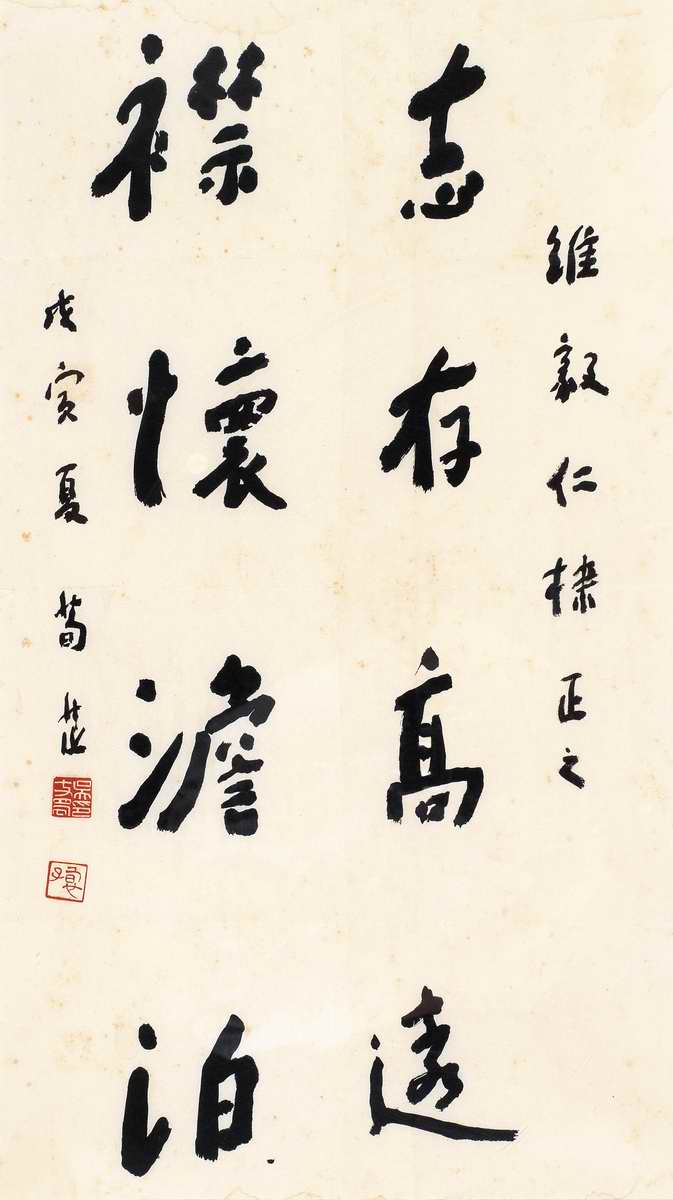 維毅仁棣正之
志存高遠
襟懷澹泊
戊寅夏